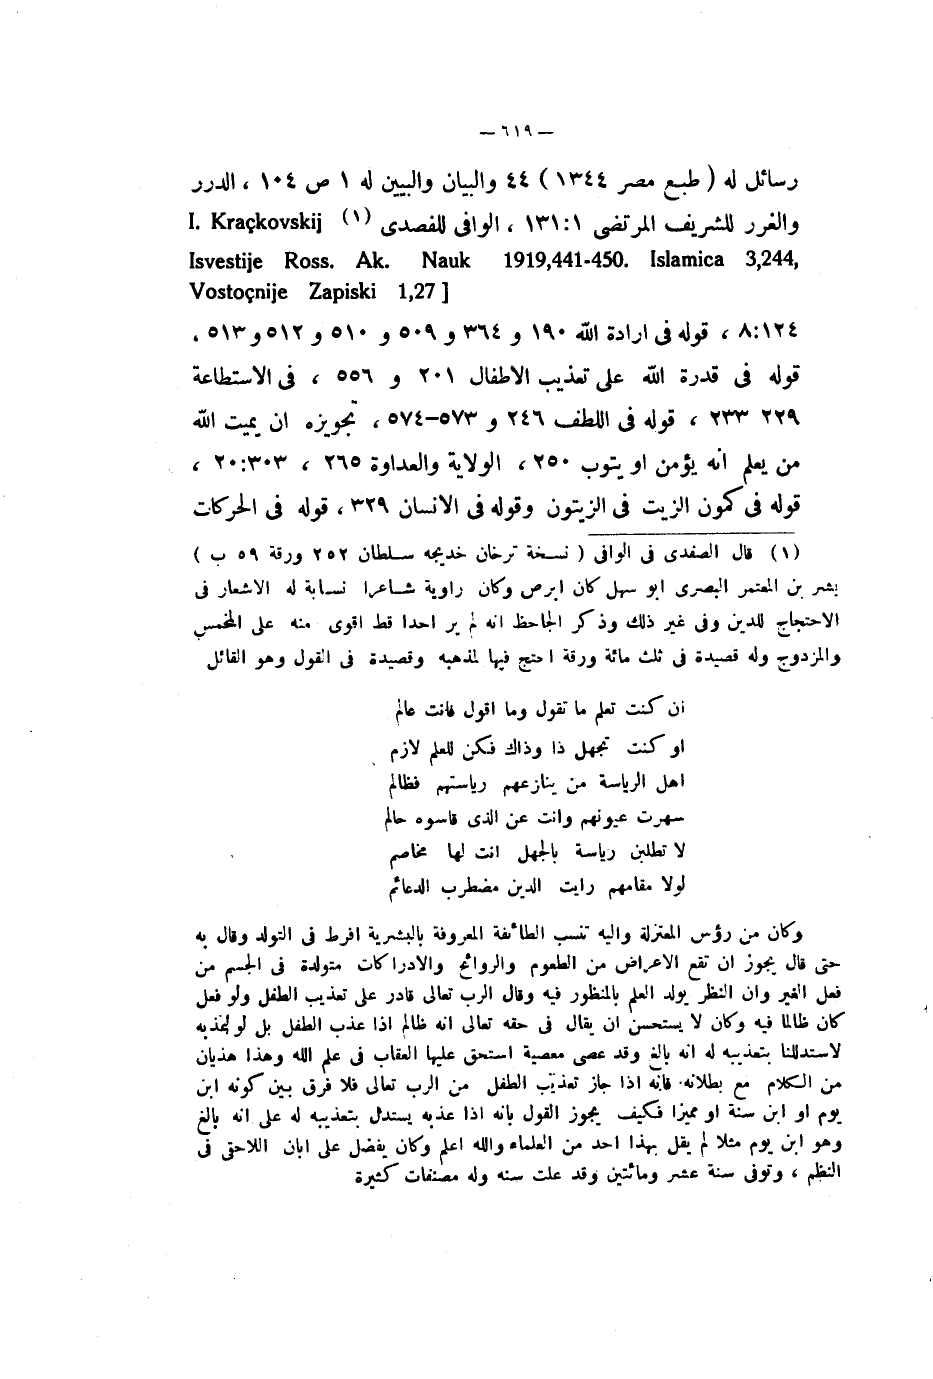 — ٦١٩ —
رسائل له ( طبع مصر ١٣٤٤ ) ٤٤ والبيان والبيين له ١ ص ١٠٤ ، الدرر
والغرر للشريف المرتضى ١٣١:١ ، الوافى للفصدى (١) I. Kraçkovskij
Isvestije Ross. Ak. Nauk 1919,441-450. Islamica 3,244,
Vostoçnije Zapiski 1,27 ]
٨:١٢٤ ، قوله فى ارادة الله ١٩٠ و ٣٦٤ و ٥٠٩ و ٥١٠ و ٥١٢ و ٥١٣ ،
قوله فى قدرة الله على تعذيب الاطفال ٢٠١ و ٥٥٦ ، فى الاستطاعة
٢٢٩ ٢٣٣ ، قوله فى اللطف ٢٤٦ و ٥٧٣–٥٧٤ ، تجويزه ان يميت الله
من يعلم انه يؤمن او يتوب ٢٥٠ ، الولاية والعداوة ٢٦٥ ، ٢٠:٣٠٣ ،
قوله فى كمون الزيت فى الزيتون وقوله فى الانسان ٣٢٩ ، قوله فى الحركات
(١) قال الصفدى فى الوافى ( نسخة ترخان خديجه سلطان ٢٥٢ ورقة ٥٩ ب )
بشر بن المعتمر البصرى ابو سهل كان ابرص وكان راوية شاعرا نسابة له الاشعار فى
الاحتجاج للدين وفى غير ذلك وذكر الجاحظ انه لم ير احدا قط اقوى منه على المخمس
والمزدوج وله قصيدة فى ثلث مائة ورقة احتج فيها لمذهبه وقصيدة فى القول وهو القائل
ان كنت تعلم ما تقول وما اقول فانت عالم
او كنت تجهل ذا وذاك فكن للعلم لازم
اهل الرياسة من ينازعهم رياستهم فظالم
سهرت عيونهم وانت عن الذى قاسوه حالم
لا تطلبن رياسة بالجهل انت لها مخاصم
لولا مقامهم رايت الدين مضطرب الدعائم
وكان من رؤس المعتزلة واليه تنسب الطائفة المعروفة بالبشرية افرط فى التولد وقال به
حتى قال يجوز ان تقع الاعراض من الطعوم والروائح والادراكات متولدة فى الجسم من
فعل الغير وان النظر يولد العلم بالمنظور فيه وقال الرب تعالى قادر على تعذيب الطفل ولو فعل
كان ظالما فيه وكان لا يستحسن ان يقال فى حقه تعالى انه ظالم اذا عذب الطفل بل لو عذبه
لاستدللنا بتعذيبه له انه بالغ وقد عصى معصية استحق عليها العقاب فى علم الله وهذا هذيان
من الكلام مع بطلانه فانه اذا جاز تعذيب الطفل من الرب تعالى فلا فرق بين كونه ابن
يوم او ابن سنة او مميزا فكيف يجوز القول بانه اذا عذبه يستدل بتعذيبه له على انه بالغ
وهو ابن يوم مثلا لم يقل بهذا احد من العلماء والله اعلم وكان يفضل على ابان اللاحقى فى
النظم ، وتوفى سنة عشر ومائتين وقد علت سنه وله مصنفات كثيرة